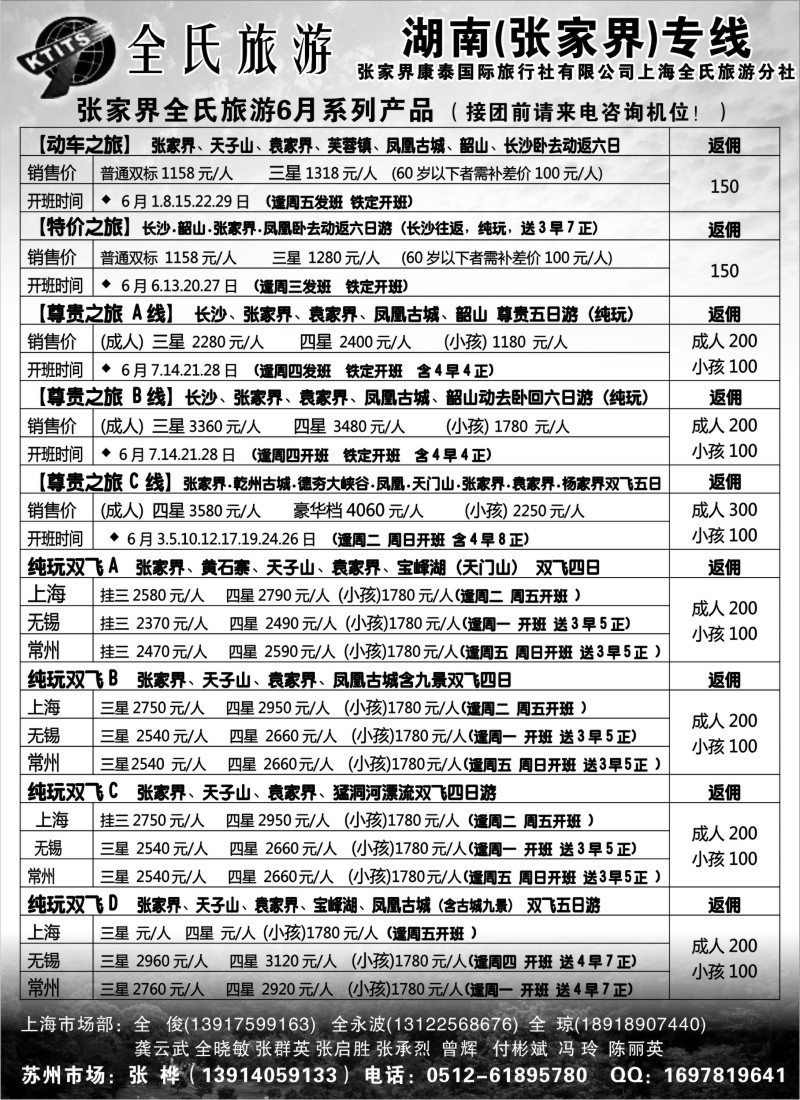 KTITS 全氏旅游 湖南(张家界)专线
张家界康泰国际旅行社有限公司上海全氏旅游分社
张家界全氏旅游6月系列产品（接团前请来电咨询机位！）
【动车之旅】 张家界、天子山、袁家界、芙蓉镇、凤凰古城、韶山、长沙卧去动返六日 返佣
销售价 普通双标 1158 元/人 三星 1318 元/人 (60 岁以下者需补差价 100 元/人) 150
开班时间 ◆ 6 月 1.8.15.22.29 日 (逢周五发班 铁定开班)
【特价之旅】长沙.韶山.张家界.凤凰卧去动返六日游（长沙往返，纯玩，送3早7正） 返佣
销售价 普通双标 1158 元/人 三星 1280 元/人 (60 岁以下者需补差价 100 元/人) 150
开班时间 ◆ 6 月 6.13.20.27 日 (逢周三发班 铁定开班)
【尊贵之旅 A 线】 长沙、张家界、袁家界、凤凰古城、韶山 尊贵五日游（纯玩） 返佣
销售价 (成人) 三星 2280 元/人 四星 2400 元/人 (小孩) 1180 元/人 成人 200
开班时间 ◆ 6 月 7.14.21.28 日 (逢周四发班 铁定开班 含4早4正) 小孩 100
【尊贵之旅 B 线】长沙、张家界、袁家界、凤凰古城、韶山动去卧回六日游（纯玩） 返佣
销售价 (成人) 三星 3360 元/人 四星 3480 元/人 (小孩) 1780 元/人 成人 200
开班时间 ◆ 6 月 7.14.21.28 日 (逢周四开班 铁定开班 含4早4正) 小孩 100
【尊贵之旅 C 线】张家界.乾州古城.德夯大峡谷.凤凰.天门山.张家界.袁家界.杨家界双飞五日 返佣
销售价 (成人) 四星 3580 元/人 豪华档 4060 元/人 (小孩) 2250 元/人 成人 300
开班时间 ◆ 6 月 3.5.10.12.17.19.24.26 日 (逢周二 周日开班 含4早8正) 小孩 100
纯玩双飞 A 张家界、黄石寨、天子山、袁家界、宝峰湖（天门山） 双飞四日 返佣
上海 挂三 2580 元/人 四星 2790 元/人 (小孩)1780 元/人(逢周二 周五开班 ) 成人 200
无锡 挂三 2370 元/人 四星 2490 元/人 (小孩)1780 元/人(逢周一 开班 送3早5正) 小孩 100
常州 挂三 2470 元/人 四星 2590 元/人 (小孩)1780 元/人(逢周五 周日开班 送3早5正 )
纯玩双飞 B 张家界、天子山、袁家界、凤凰古城含九景双飞四日 返佣
上海 三星 2750 元/人 四星 2950 元/人 (小孩)1780 元/人(逢周二 周五开班 ) 成人 200
无锡 三星 2540 元/人 四星 2660 元/人 (小孩)1780 元/人(逢周一 开班 送3早5正) 小孩 100
常州 三星2540 元/人 四星 2660元/人 (小孩)1780 元/人(逢周五 周日开班 送3早5正 )
纯玩双飞 C 张家界、天子山、袁家界、猛洞河漂流双飞四日游 返佣
上海 挂三 2750 元/人 四星 2950 元/人 (小孩)1780 元/人 (逢周二 周五开班 ) 成人 200
无锡 三星 2540 元/人 四星 2660 元/人 (小孩)1780 元/人(逢周一 开班 送3早5正) 小孩 100
常州 三星 2540 元/人 四星 2660 元/人 (小孩)1780 元/人(逢周五 周日开班 送3早5正 )
纯玩双飞 D 张家界、天子山、袁家界、宝峰湖、凤凰古城（含古城九景） 双飞五日游 返佣
上海 三星 元/人 四星 元/人 (小孩)1780 元/人 (逢周五开班 ) 成人 200
无锡 三星 2960 元/人 四星 3120 元/人 (小孩)1780 元/人(逢周四 开班 送4早7正) 小孩 100
常州 三星 2760 元/人 四星 2920 元/人 (小孩)1780 元/人(逢周一 开班 送4早7正)
上海市场部：全 俊(13917599163) 全永波(13122568676) 全 琼(18918907440)
龚云武 全晓敏 张群英 张启胜 张承烈 曾辉 付彬斌 冯 玲 陈丽英
苏州市场：张 桦（13914059133）电话：0512-61895780 QQ：1697819641